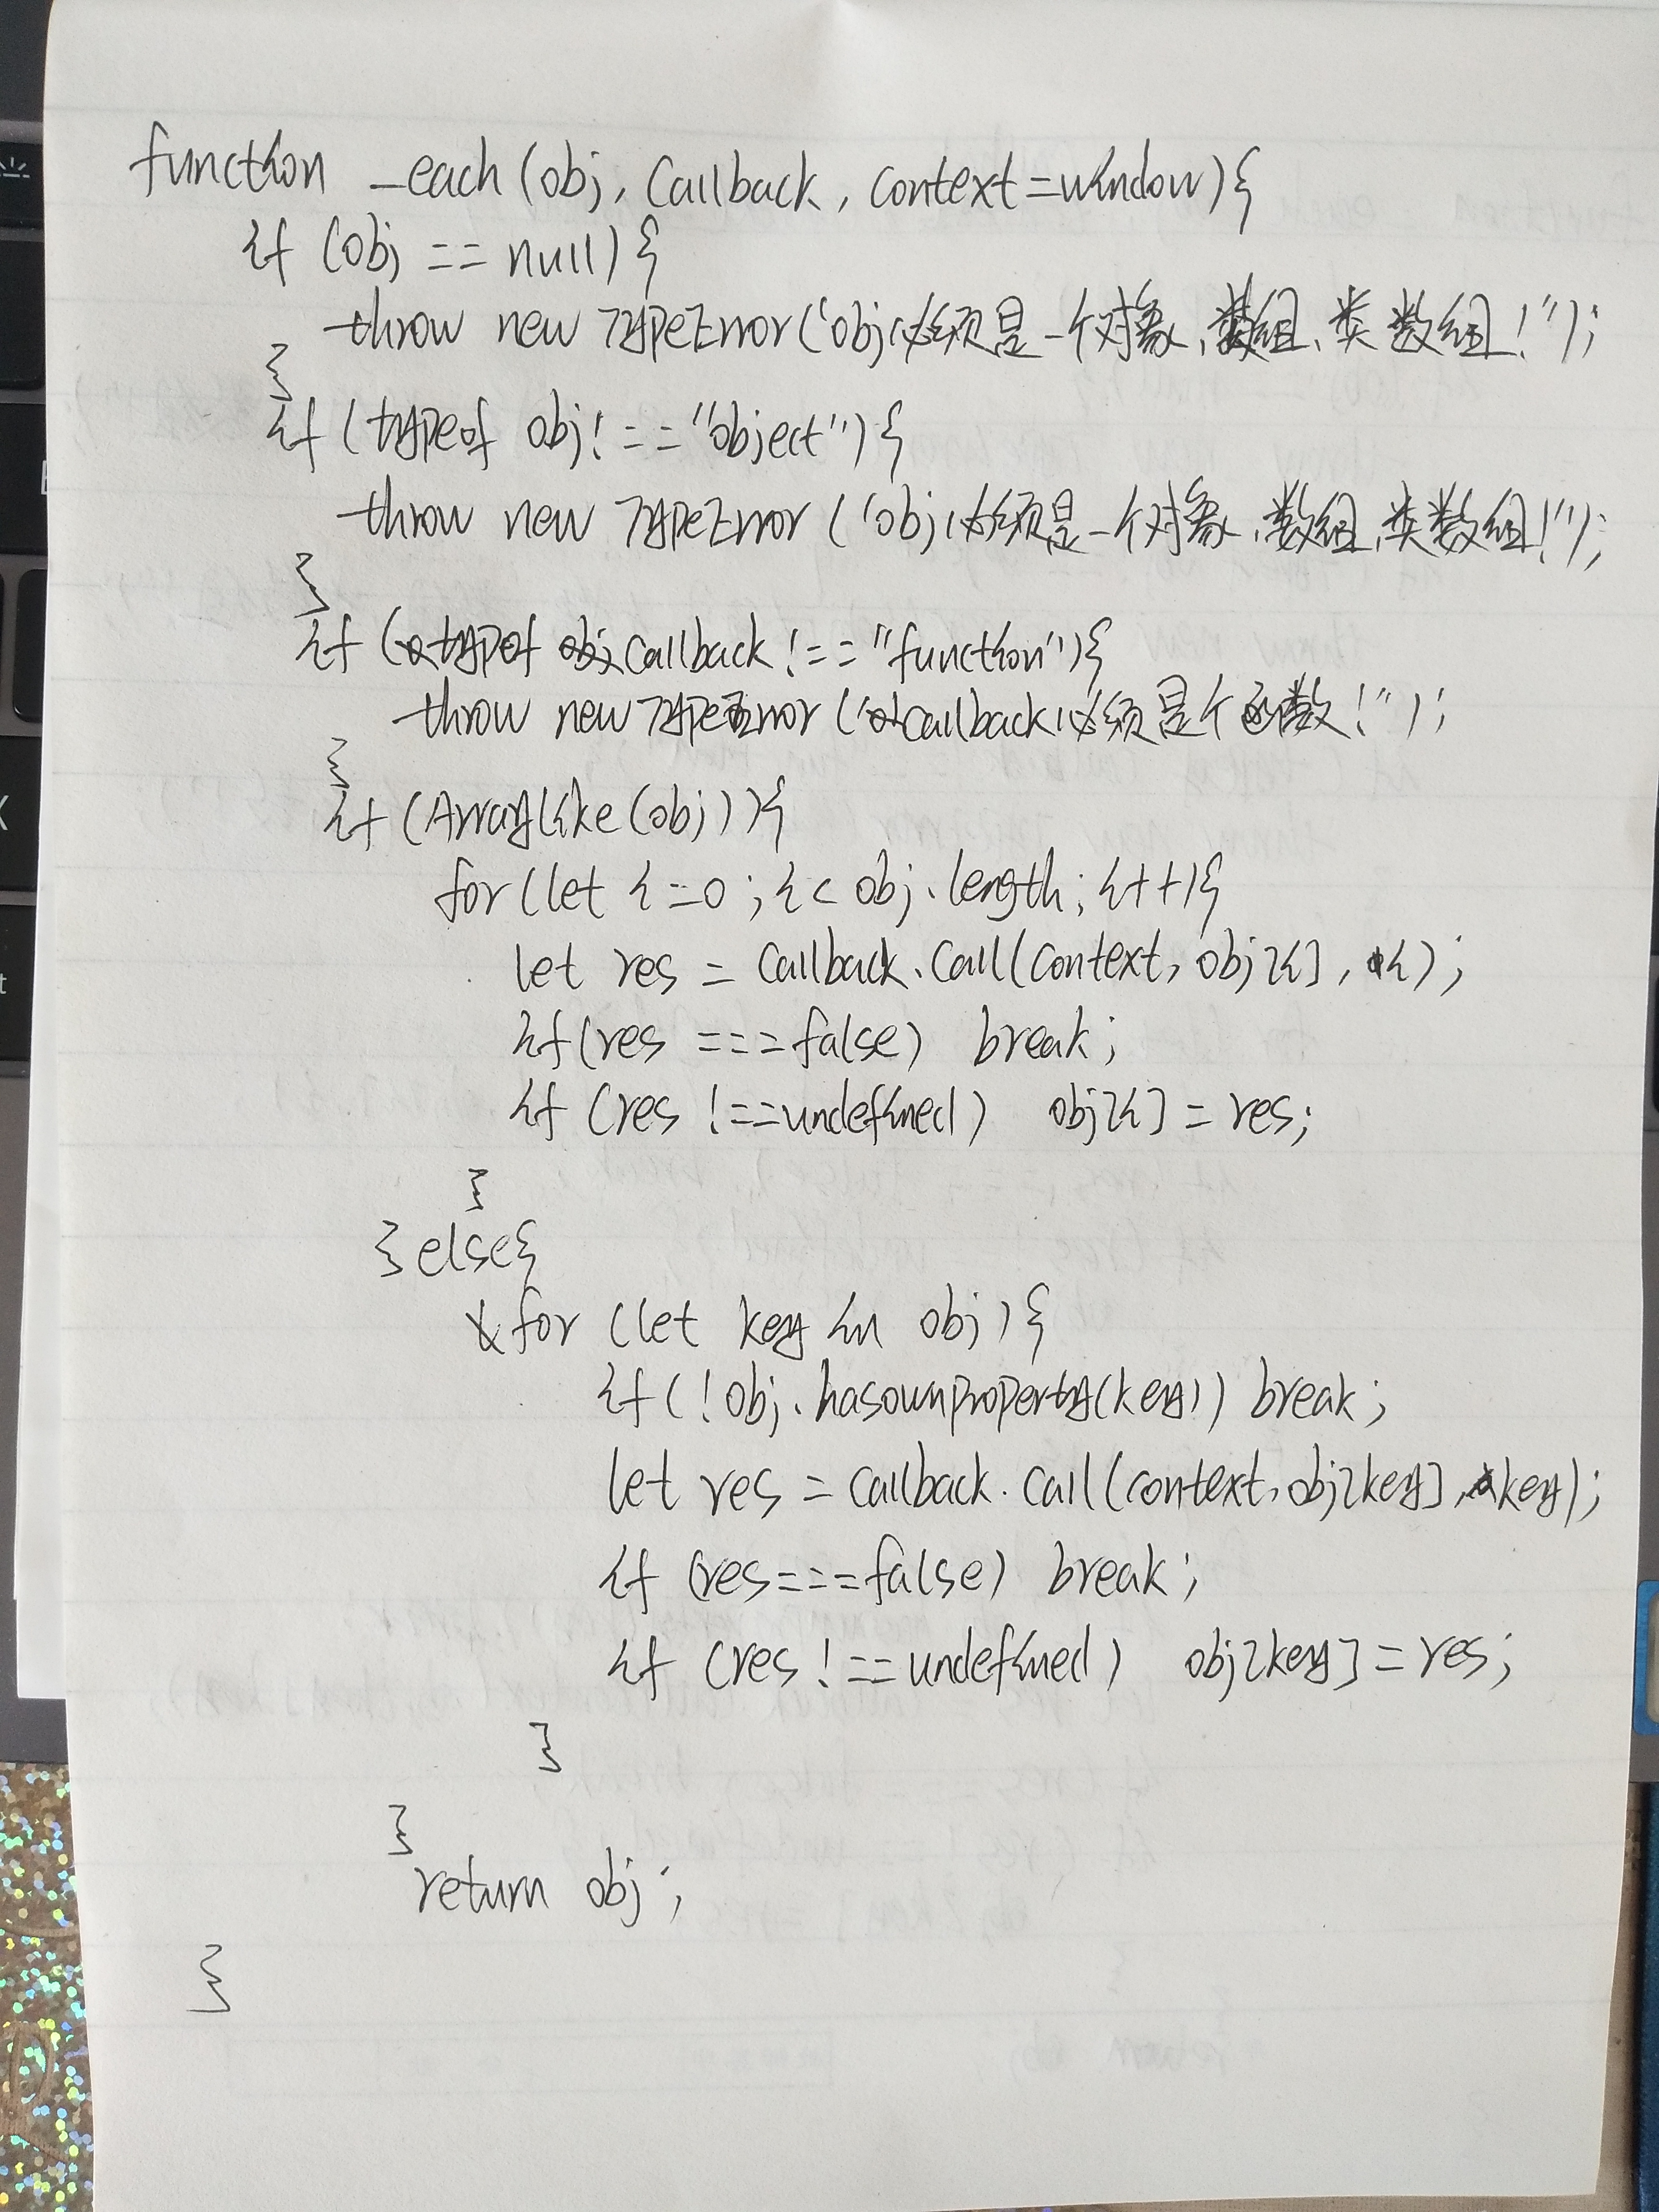 function _each(obj, callback, context=window){
if (obj == null){
throw new TypeError("obj必须是一个对象、数组、类数组!");
}
if (typeof obj !== "object"){
throw new TypeError("obj必须是一个对象、数组、类数组!");
}
if (typeof callback !== "function"){
throw new TypeError("callback必须是个函数!");
}
if (ArrayLike(obj)){
for (let i=0; i< obj.length; i++){
let res = callback.call(context, obj[i], i);
if(res === false) break;
if (res !== undefined) obj[i] = res;
}
}else{
for (let key in obj){
if(!obj.hasownproperty(key)) break;
let res = callback.call(context, obj[key], key);
if (res===false) break;
if (res !== undefined) obj[key] = res;
}
}
return obj;
}